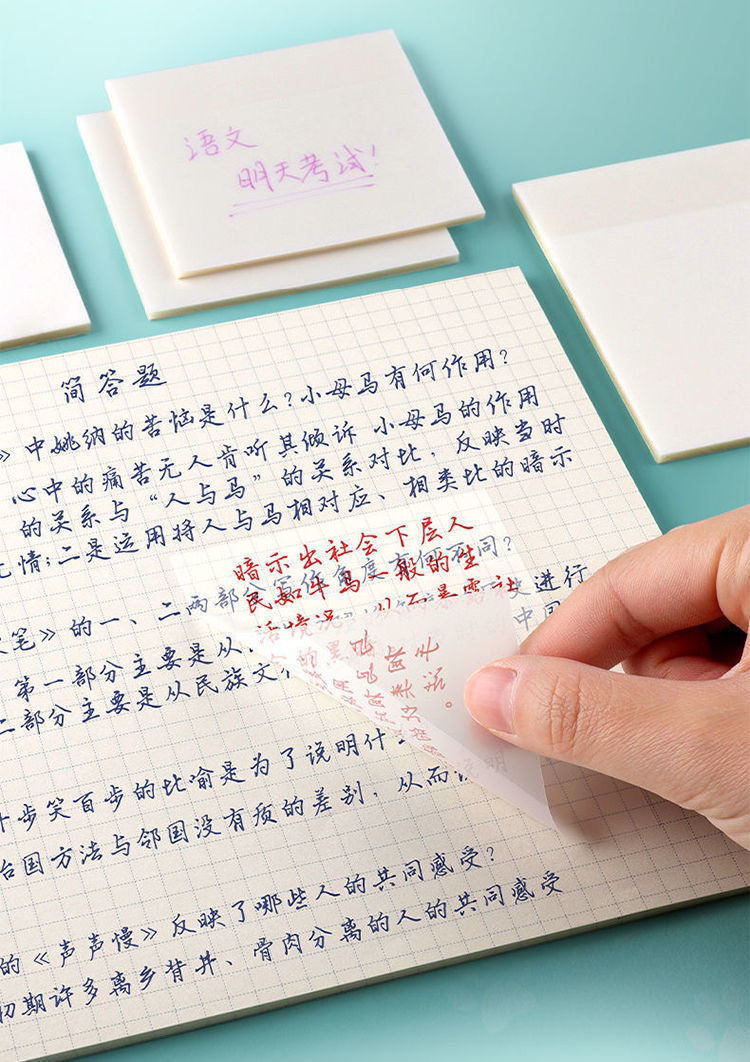 语文
明天考试!
简答题
》中姚纳的苦恼是什么?小母马有何作用?
心中的痛苦无人肯听其倾诉 小母马的作用
的关系与“人与马”的关系对比,反映当时
无情;二是运用将人与马相对应、相类比的暗示
暗示出社会下层人
民如牛马一般的生
活境况,从而暴露社
笔》的一、二两部分写作角度有何不同?
史进行
第一部分主要是从
二部分主要是从民族文
十步笑百步的比喻是为了说明什
治国方法与邻国没有质的差别,从而说明
的《声声慢》反映了哪些人的共同感受?
初期许多离乡背井、骨肉分离的人的共同感受